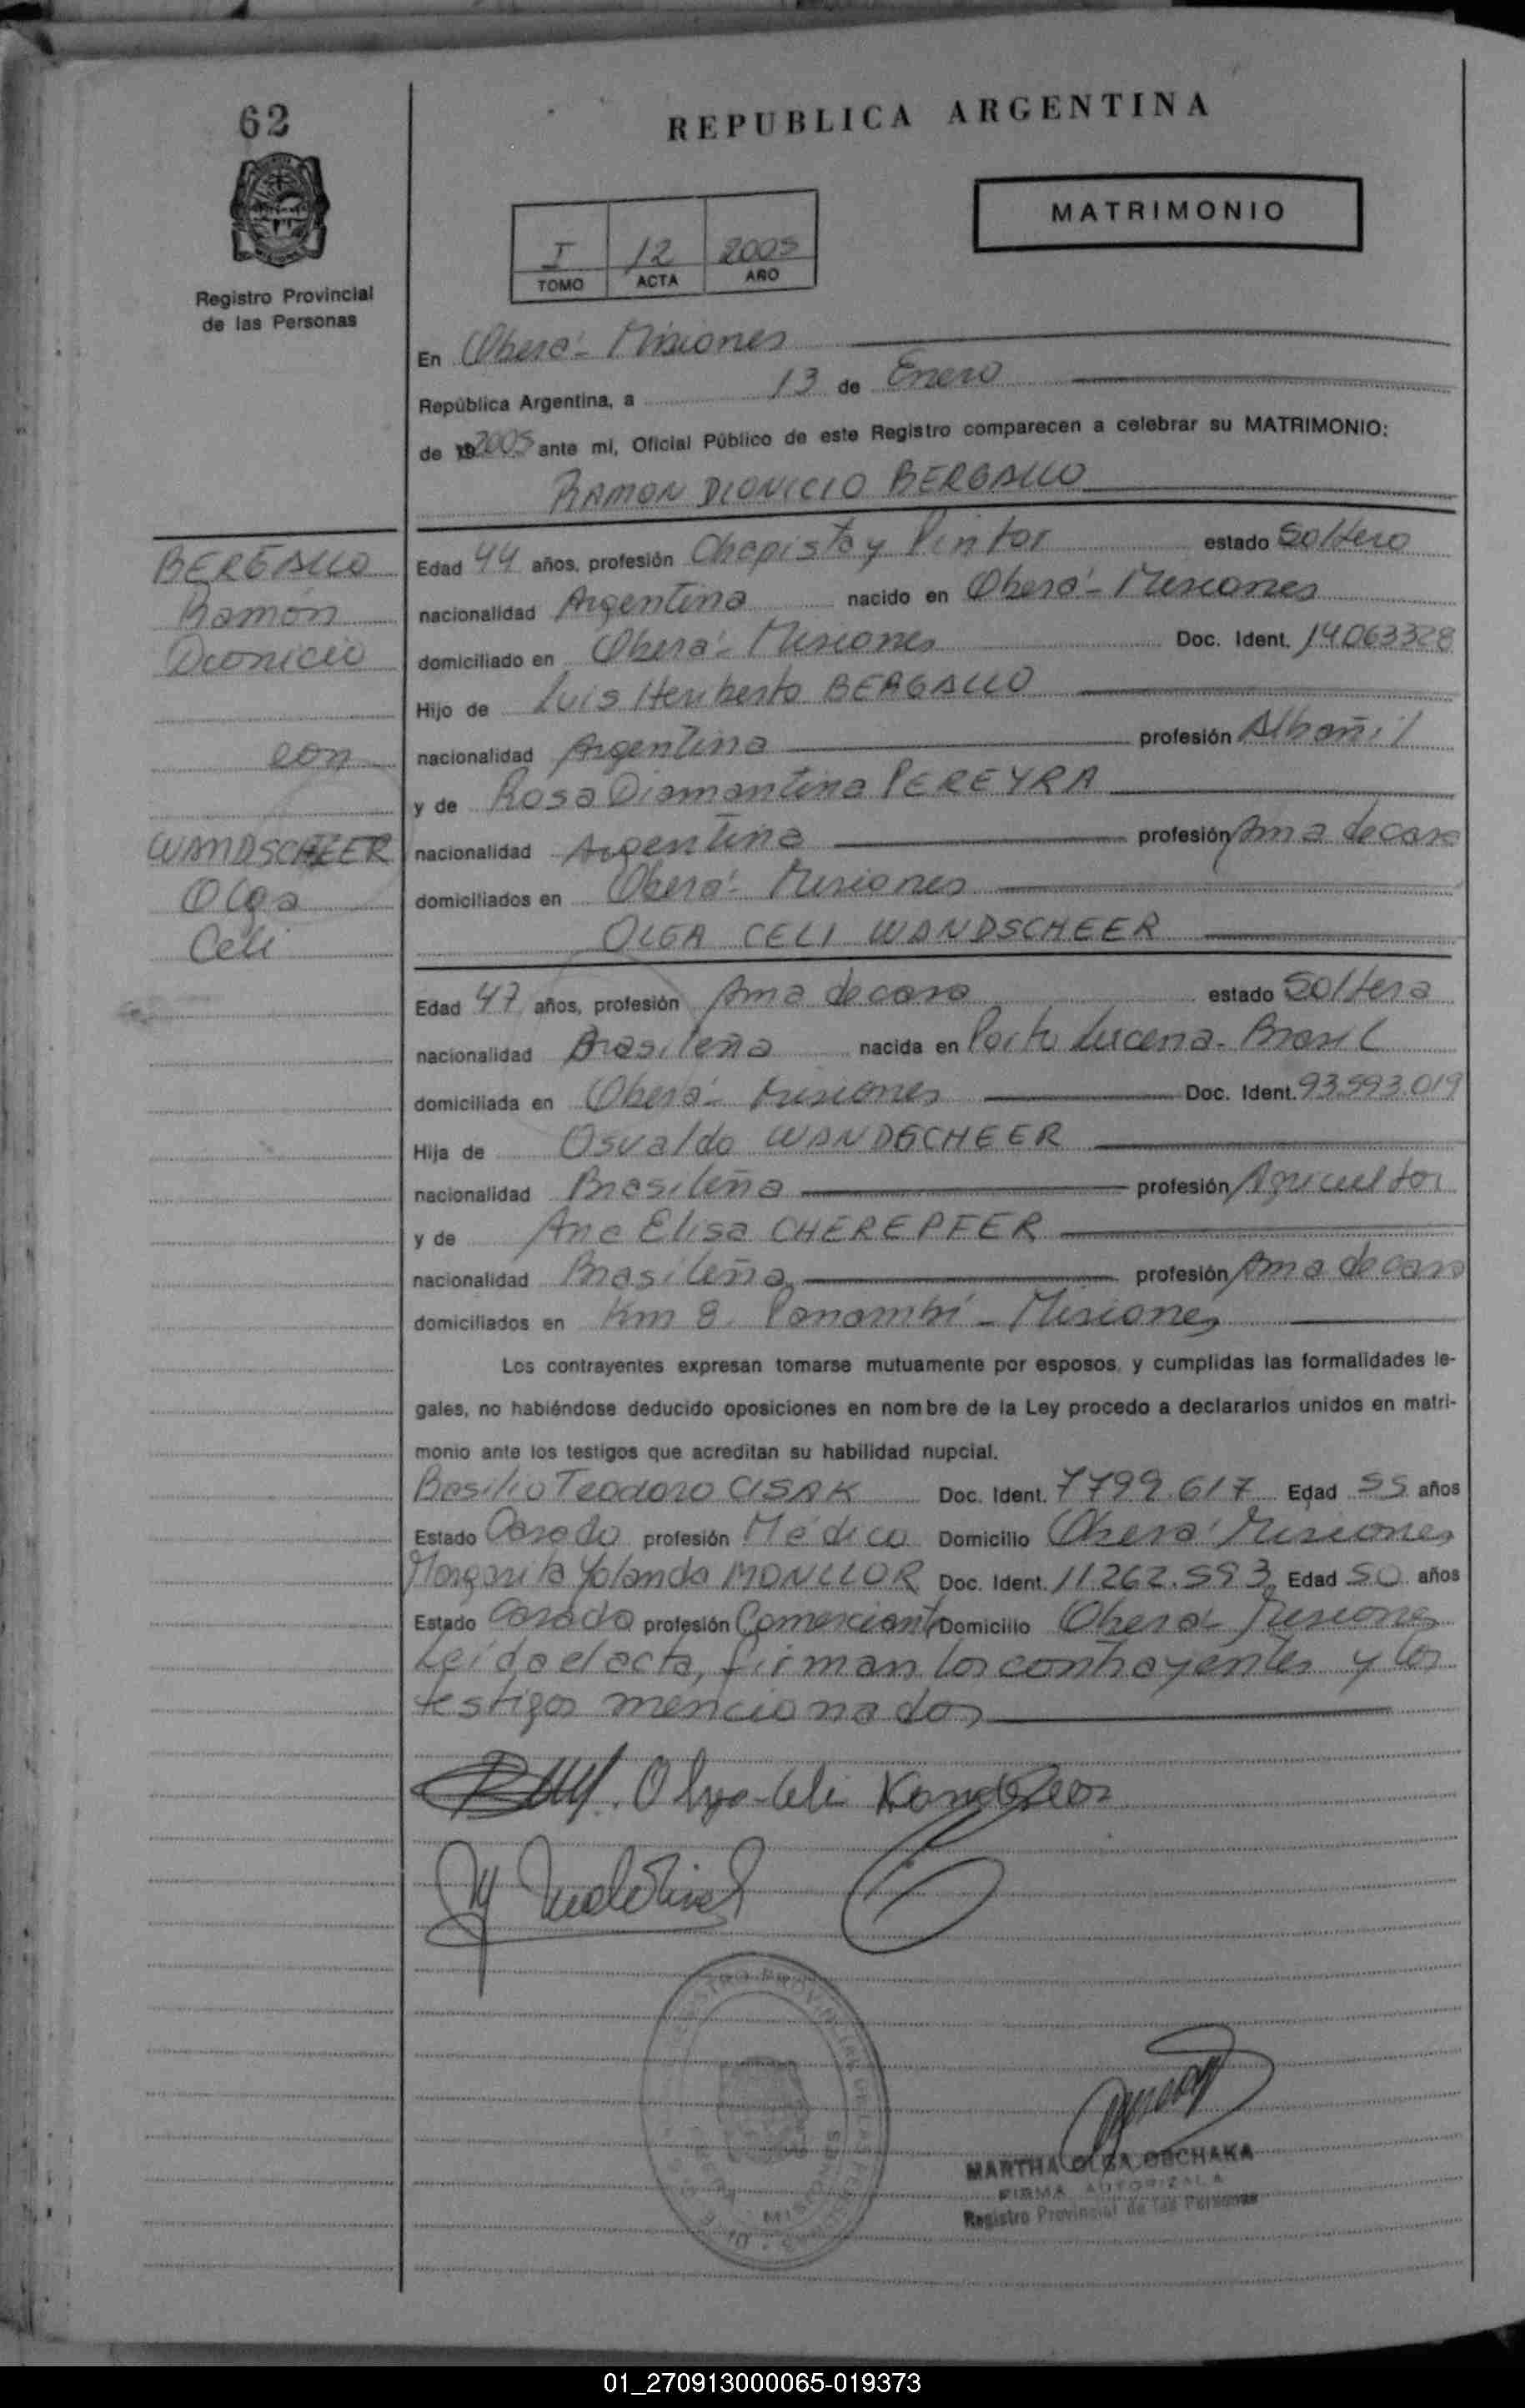 62
REPUBLICA ARGENTINA
MATRIMONIO
I 12 2005
TOMO ACTA AÑO
Registro Provincial
de las Personas
En Oberá - Misiones
República Argentina, a 13 de Enero
de 2005 ante mí, Oficial Público de este Registro comparecen a celebrar su MATRIMONIO:
RAMON DIONICIO BERGALLO
BERGALLO
Ramón
Dionicio
con
WANDSCHEER
Olga
Celi
Edad 44 años, profesión Chapista y Pintor estado Soltero
nacionalidad Argentina nacido en Oberá - Misiones
domiciliado en Oberá - Misiones Doc. Ident. 14.063328
Hijo de Luis Heriberto BERGALLO
nacionalidad Argentina profesión Albañil
y de Rosa Diamantina PEREYRA
nacionalidad Argentina profesión Ama de casa
domiciliados en Oberá - Misiones
OLGA CELI WANDSCHEER
Edad 47 años, profesión Ama de casa estado Soltera
nacionalidad Brasileña nacida en Porto Lucena - Brasil
domiciliada en Oberá - Misiones Doc. Ident. 93.593.019
Hija de Osvaldo WANDSCHEER
nacionalidad Brasileña profesión Agricultor
y de Ana Elisa CHEREPFER
nacionalidad Brasileña profesión Ama de casa
domiciliados en Km 8. Panambí - Misiones
Los contrayentes expresan tomarse mutuamente por esposos, y cumplidas las formalidades le-
gales, no habiéndose deducido oposiciones en nombre de la Ley procedo a declararlos unidos en matri-
monio ante los testigos que acreditan su habilidad nupcial.
Basilio Teodoro CISAK Doc. Ident. 7799.617 Edad 55 años
Estado Casado profesión Médico Domicilio Oberá - Misiones
Margarita Yolanda MONLLOR Doc. Ident. 11.262.593 Edad 50 años
Estado Casada profesión Comerciante Domicilio Oberá - Misiones
Leída el acta, firman los contrayentes y los
testigos mencionados
Olga Celi
MARTHA OLGA OBCHAKA
FIRMA AUTORIZADA
Registro Provincial de las Personas
01_270913000065-019373